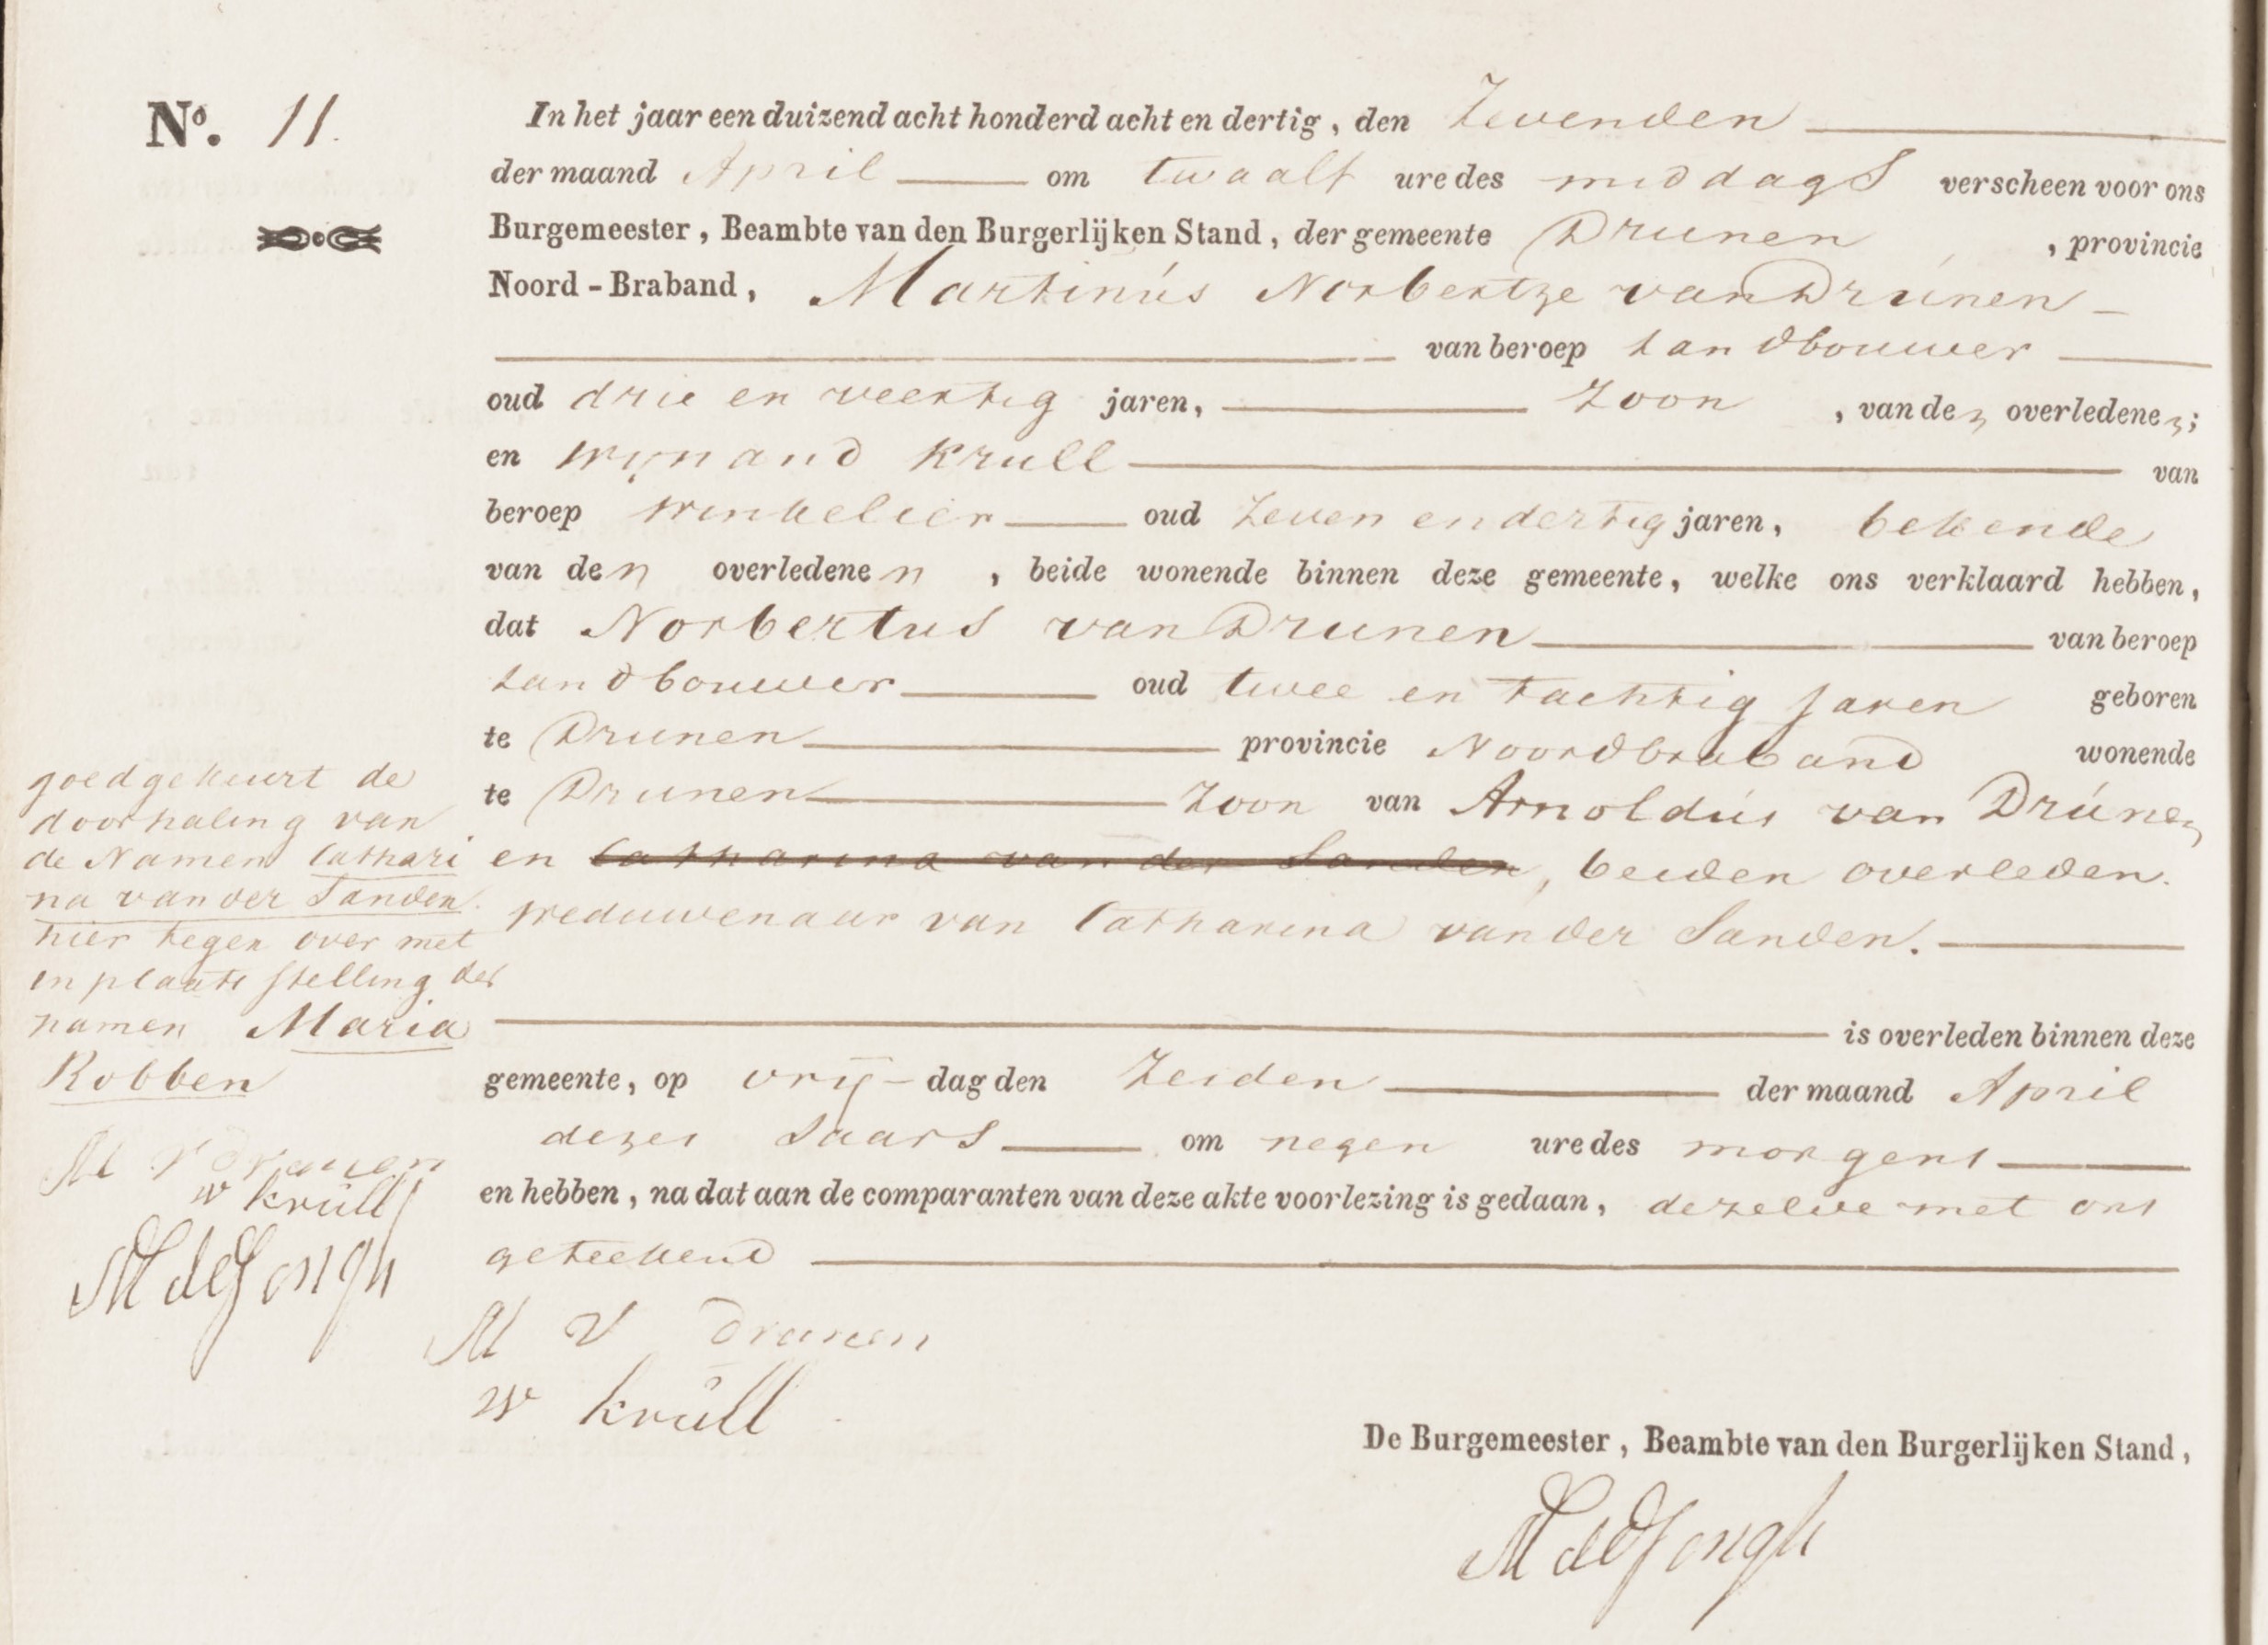 No. 11.
In het jaar een duizend acht honderd acht en dertig, den Zevenden
der maand April om twaalf ure des middags verscheen voor ons
Burgemeester, Beambte van den Burgerlijken Stand, der gemeente Drunen, provincie
Noord-Braband, Martinús Norbertze van Drúnen
van beroep Landbouwer
oud drie en veertig jaren, Zoon, van den overledenen;
en Wijnand Krull van
beroep Winkelier oud Zeven en dertig jaren, bekende
van den overledenen, beide wonende binnen deze gemeente, welke ons verklaard hebben,
dat Norbertus van Drunen van beroep
Landbouwer oud twee en tachtig Jaren geboren
te Drunen provincie Noordbraband wonende
te Drunen Zoon van Arnoldús van Drúnen
en Catharina van der Sanden, beiden overleden.
Weduwenaar van Catharina van der Sanden.
is overleden binnen deze
gemeente, op vrij-dag den Zesden der maand April
dezes Jaars om negen ure des morgens
en hebben, na dat aan de comparanten van deze akte voorlezing is gedaan, dezelve met ons
geteekend
goedgekeurt de
doorhaling van
de Namen Cathari
na van der Sanden.
hier tegen over met
in plaats stelling der
namen Maria
Robben
M v Drunen
W Krüll
M de Jongh
M V Drunen
W Krüll
De Burgemeester, Beambte van den Burgerlijken Stand,
M de Jongh